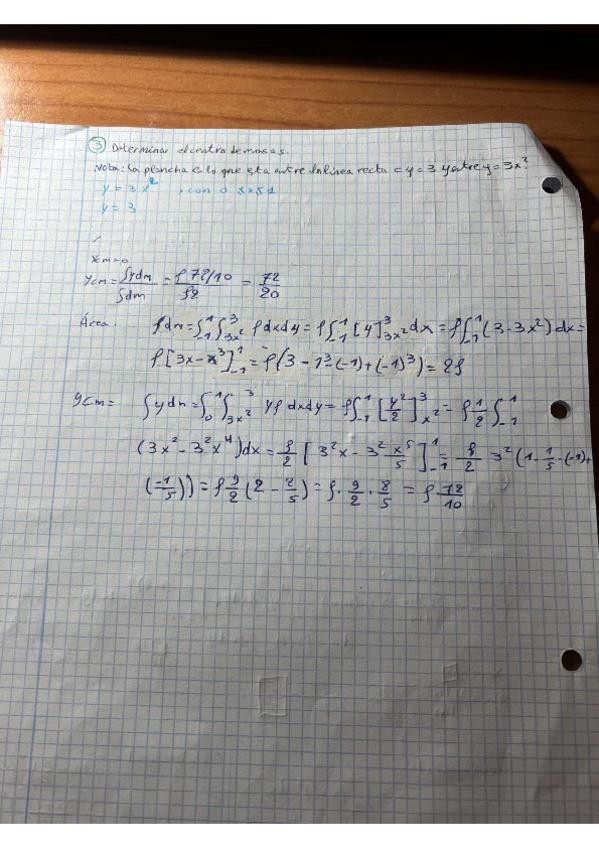 ③ Determinar el centro de masas.
Nota: la plancha e lo que esta entre la linea recta = y = 3 y entre y = 3x²
y = 3x² , con 0 ≤ x ≤ 1
y = 3
Xm = 0
Ycm = ∫ydm / ∫dm = ρ 72/10 / ρ2 = 72/20
Área. ∫dm = ∫₋₁¹ ∫₃ₓ²³ ρ dxdy = ρ∫₋₁¹ [y]³₃ₓ² dx = ρ∫₋₁¹ (3-3x²) dx =
ρ[3x-x³]₋₁¹ = ρ(3 - 1³ - (-1) + (-1)³) = 2ρ
Ycm = ∫ydm = ∫₀¹ ∫₃ₓ²³ yρ dxdy = ρ∫₋₁¹ [y²/2]³ₓ² = ρ 1/2 ∫₋₁¹
(3x² - 3²x⁴) dx = ρ/2 [3²x - 3² x⁵/5]₋₁¹ = ρ/2 3² (1 - 1/5 - (-1) +
(-1/5)) = ρ 9/2 (2 - 2/5) = ρ · 9/2 · 8/5 = ρ · 72/10